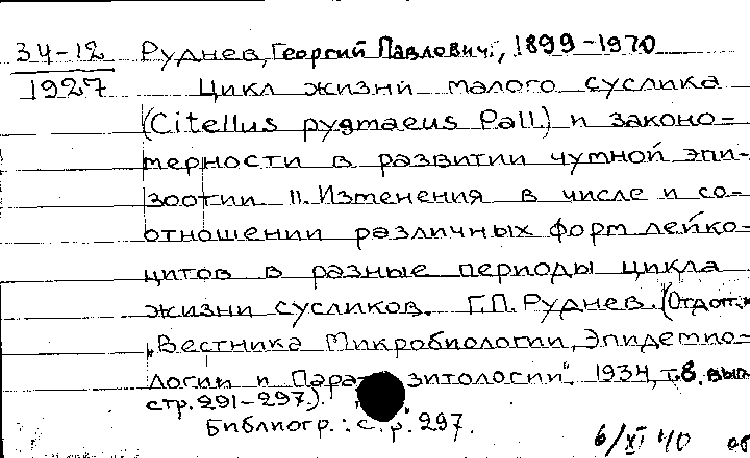 34-12 Руднев, Георгий Павлович, 1899-1970
1927 Цикл жизни малого суслика
(Citellus pygmaeus Pall.) и законо-
мерности в развитии чумной эпи-
зоотии II. Изменения в числе и со-
отношении различных форм лейко-
цитов в разные периоды цикла
жизни сусликов. Г.П. Руднев. (Отдот.
"Вестника Микробиологии, Эпидемио-
логии и Пара зитологии". 1934, т.8. вып
стр. 291-297).
Библиогр.: с.р. 297.
6/XI 40